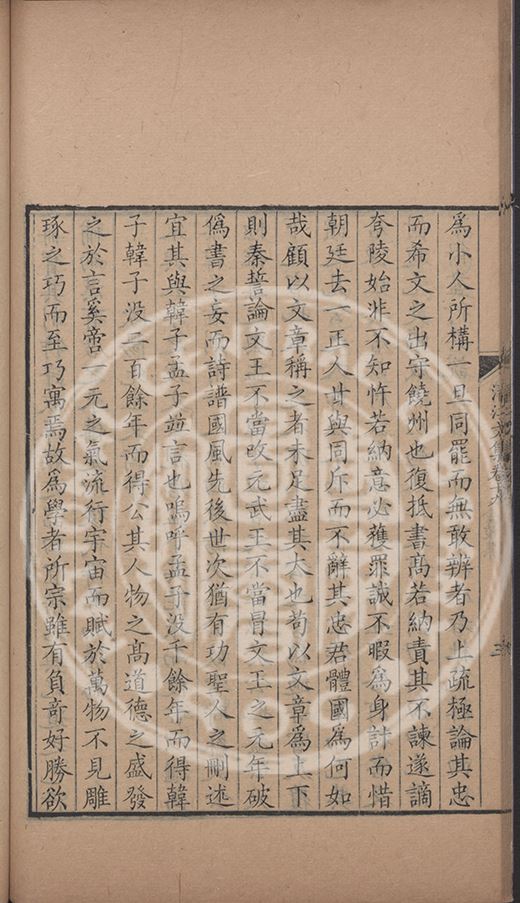 爲小人所構一旦同罷而無敢辨者乃上疏極論其忠
而希文之出守饒州也復抵書高若納責其不諫遂謫
夸陵始非不知忤若納意必獲罪誠不暇爲身計而惜
朝廷去一正人甘與同斥而不辭其忠君體國爲何如
哉顧以文章稱之者未足盡其大也苟以文章爲上下
則秦誓論文王不當改元武王不當冒文王之元年破
僞書之妄而詩譜國風先後世次猶有功聖人之刪述
宜其與韓子孟子並言也嗚呼孟子没千餘年而得韓
子韓子没二百餘年而得公其人物之高道德之盛發
之於言奚啻一元之氣流行宇宙而賦於萬物不見雕
琢之巧而至巧寓焉故爲學者所宗雖有負奇好勝欲